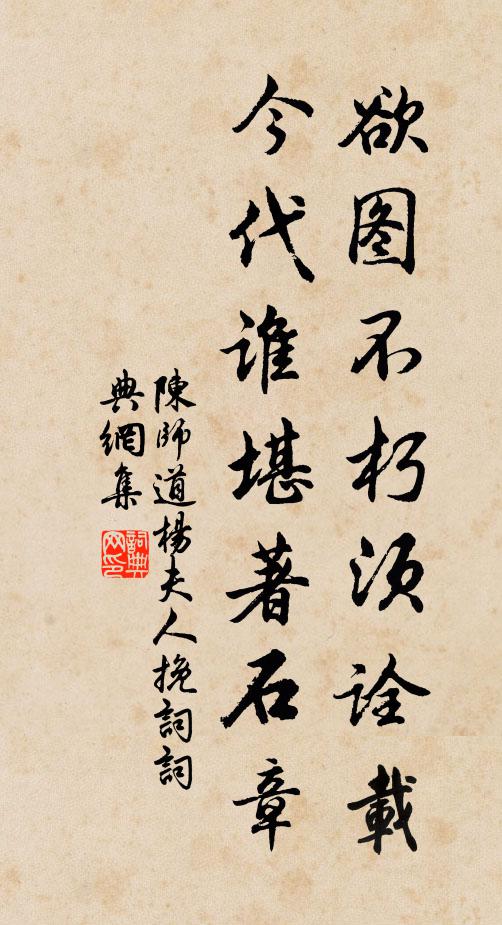 欲图不朽须诠載
今代谁堪著石章
陳師道楊夫人挽詞詞
典網集
詞典网印